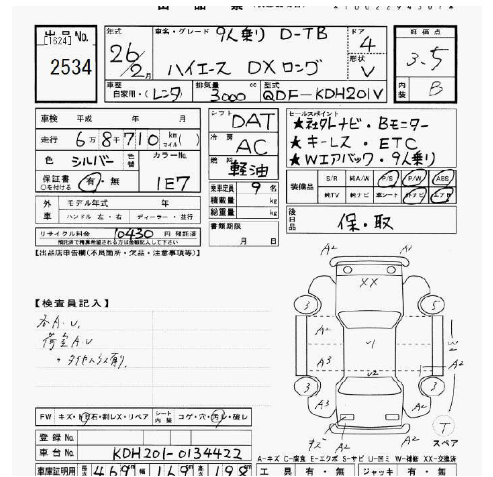 出品No.
[1624]
2534
年式
26年/2月
車名・グレード 9人乗り D-TB
ハイエース DXロング
ドア
4
形状
V
評価点
3.5
内装 B
車歴
自家用・(レンタ
排気量
3000 cc
型式
QDF-KDH201V
車検 平成 年 月
走行 6万8千710 km(マイル)
色 シルバー 色替 カラーNo.
1E7
保証書 有・無
○を付ける
外車 モデル年式 年
ハンドル 左・右 ディーラー・並行
リサイクル料金 10430 円 預託済
シフト DAT
冷房 AC
燃料 軽油
乗車定員 9 名
積載量 kg
総重量 kg
書類期限
月 日
セールスポイント
★社外ナビ・Bモニター
★キーレス・ETC
★Wエアバック・9人乗り
装備品 S/R 純A/W P/S P/W ABS
純TV 純ナビ 革シート カナビ エアB
後日品 保・取
【出品店申告欄(不具箇所・欠品・注意事項等)】
【検査員記入】
各A・U.
荷室AU
FW キズ・飛石・割レX・リペア シート内装 コゲ・穴・汚レ・破レ
登録No.
車台No. KDH201-0134422
車庫証明用 長さ 469 幅 169 高さ 198
A2
A2
XX
3
5
A2
U1
A2
W2
A3
U2
A2
3
3
A3
キズ
A2
A2
A2
T
スペア
A-キズ C-腐食 E-エクボ S-サビ U-凹ミ W-補修 XX-交換済
工具 有・無 ジャッキ 有・無